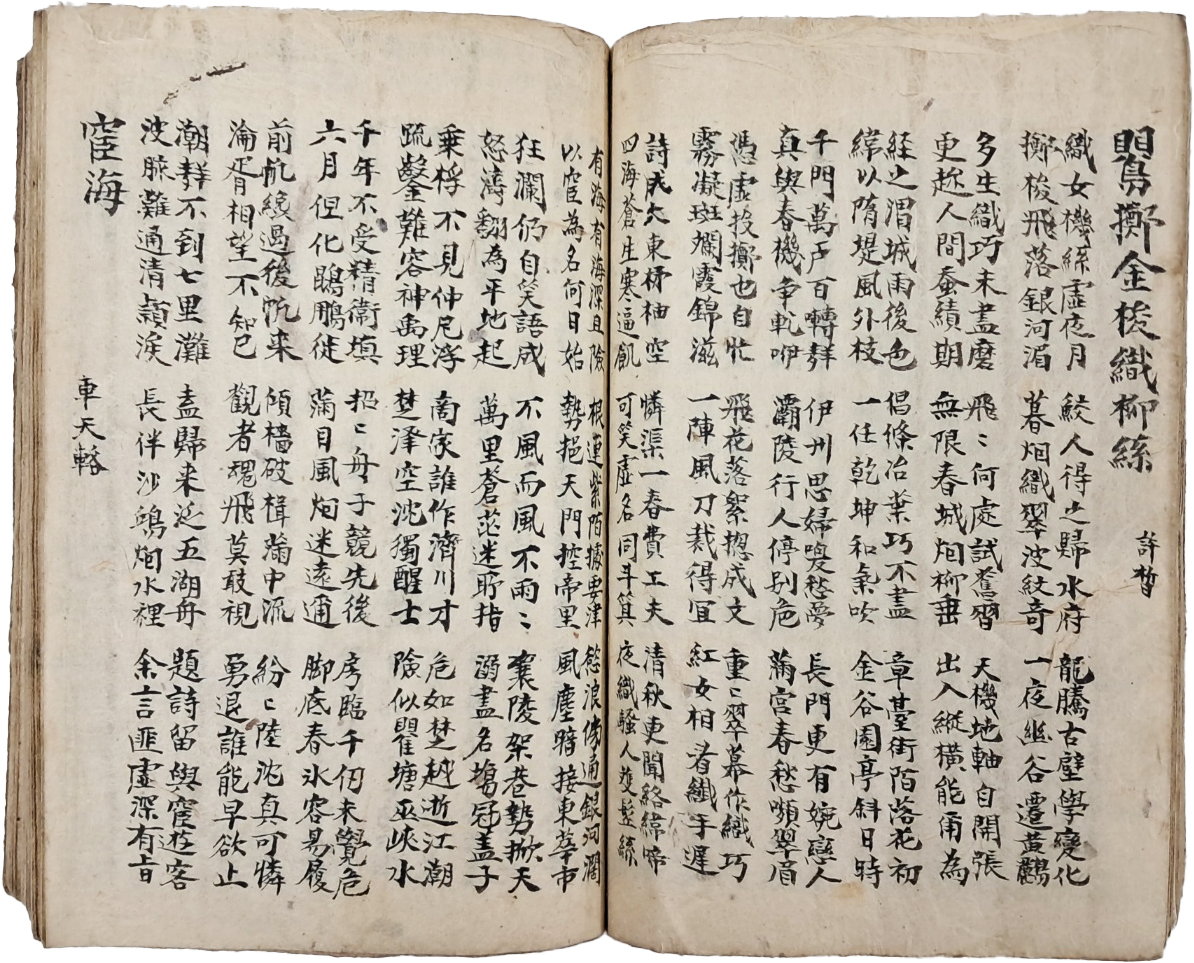 鸎擲金梭織柳絲 許晳
織女機絲虛夜月 鮫人得之歸水府 龍騰古壁學變化
擲梭飛落銀河湄 暮烟織翠波紋奇 一夜幽谷遷黃鸝
多生織巧未盡磨 飛〻何處試舊習 天機地軸自開張
更趂人間蚕績期 無限春城烟柳垂 出入縱橫能甭為
経之渭城雨後色 倡條冶葉巧不盡 章臺街陌落花初
緯以隋堤風外枝 一任乾坤和氣吹 金谷園亭斜日時
千門萬戶百囀聲 伊州思婦喚愁夢 長門更有婉戀人
真與春機爭軋咿 灞陵行人停别卮 滿宮春愁嚬翠眉
憑虛投擲也自忙 飛花落絮摠成文 重〻翠幕作織巧
霧凝斑斕霞錦滋 一陣風刀裁得宜 紅女相看纖手遲
詩成大東杼柚空 憐渠一春費工夫 清秋更聞絡緯啼
四海蒼生寒逼飢 可笑虛名同斗箕 夜織騷人雙鬢絲
有海有海深且險 根連紫陌據要津 慾浪傍通銀河濶
以宦為名何日始 勢挹天門控帝里 風塵暗接東華市
狂瀾仍自笑語成 不風而風不雨〻 襄陵架巷勢掀天
怒濤翻為平地起 萬里蒼茫迷所指 溺盡名塲冠盖子
乗桴不見仲尼浮 商家誰作濟川才 危如楚越逝江潮
疏鑿難容神禹理 楚澤空沈獨醒士 險似瞿塘巫峽水
千年不受精衛填 招〻舟子競先後 房臨千仞未覺危
六月但化鵾鵬徙 滿目風烟迷遠邇 脚底春氷容易履
前帆纔過後帆来 傾檣破楫滿中流 紛〻陸沈真可憐
淪胥相望不知已 觀者魂飛莫敢視 勇退誰能早欲止
潮聲不到七里灘 盍歸来泛五湖舟 題詩留與宦遊客
波脉難通清潁涘 長伴沙鷗烟水裡 余言匪虛深有旨
宦海 車天輅